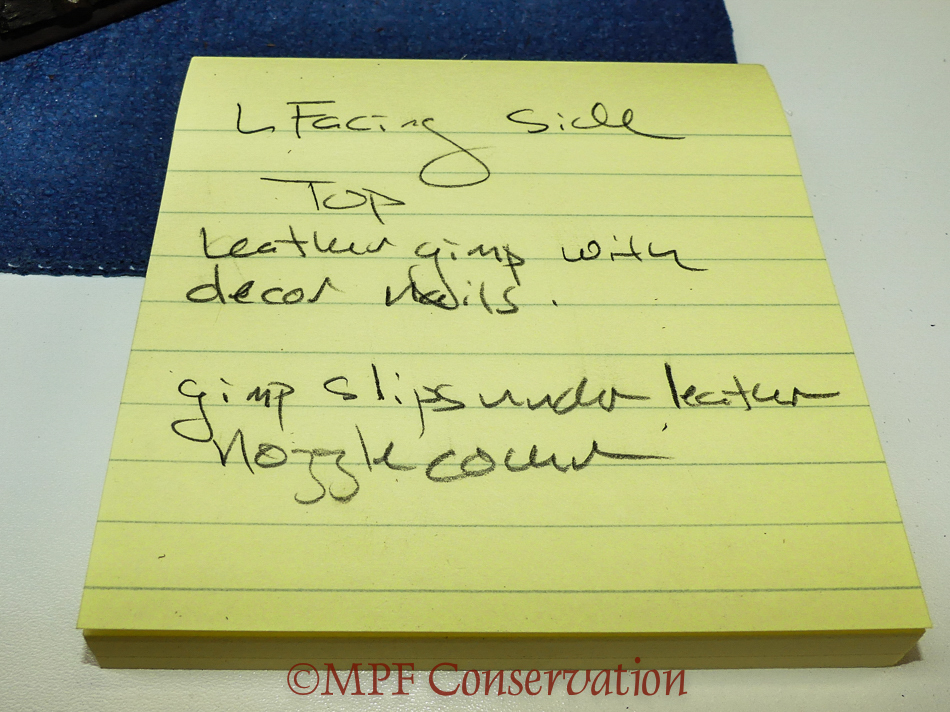 L Facing Side
Top
Leather gimp with
decor nails.
gimp slips under leather
Nozzle cover
©MPF Conservation